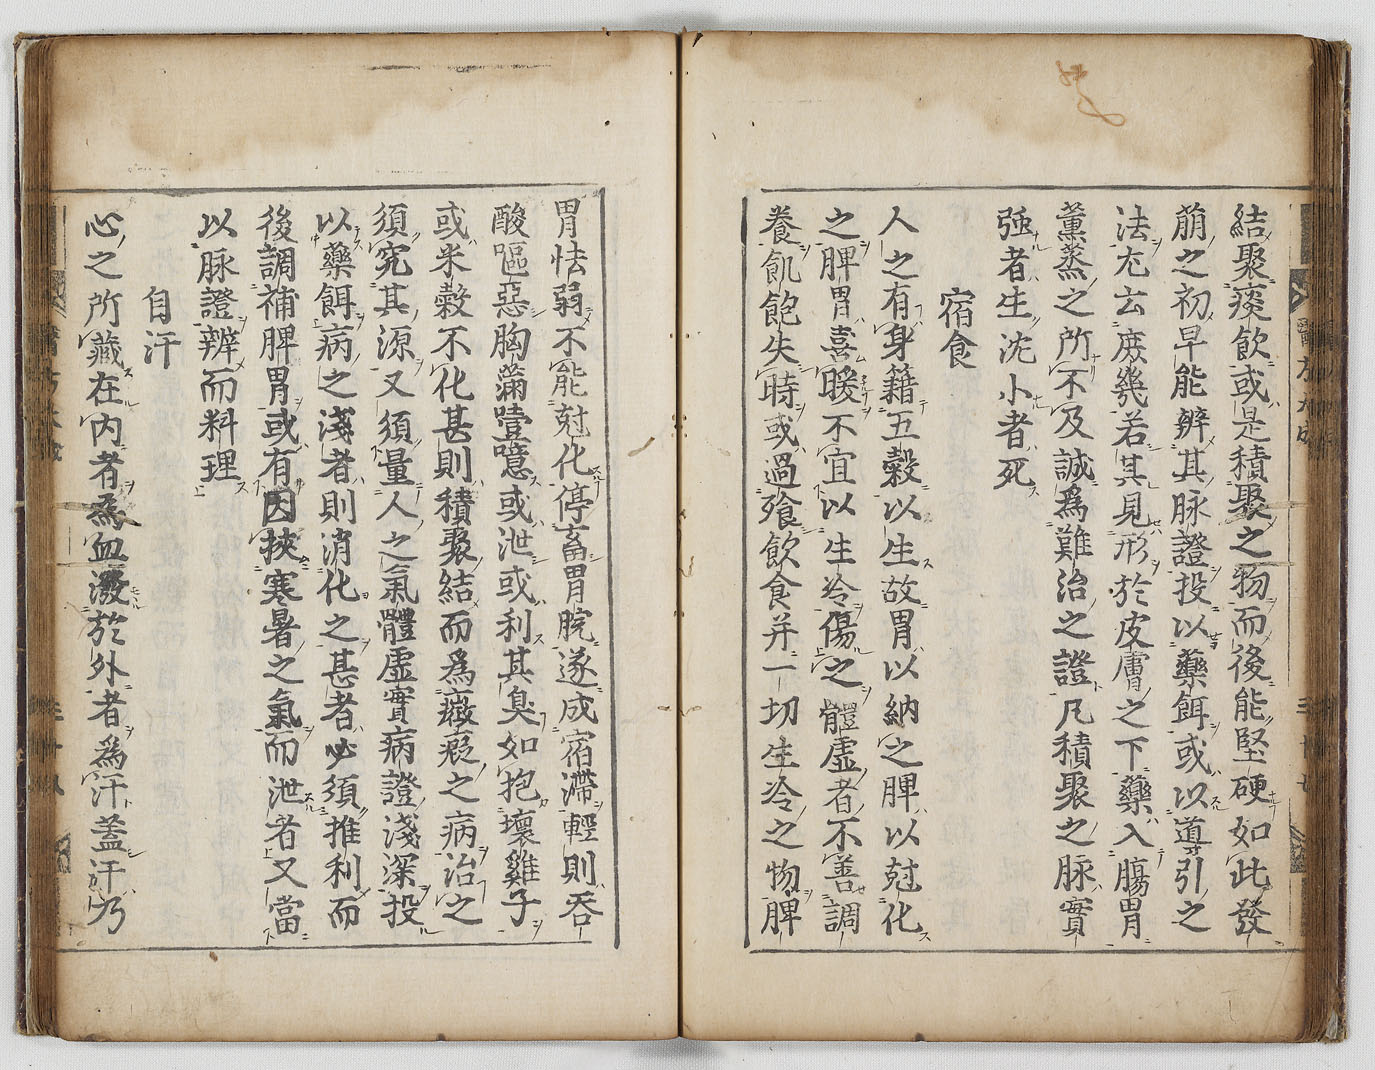 結聚痰飲或是積聚之物而後能堅硬如此發
萠之初早能辨其脉證投以藥餌或以導引之
法尤云庶幾若其見形於皮膚之下藥入腸胃
薫蒸之所不及誠爲難治之證凡積聚之脉實
强者生沈小者死
宿食
人之有身籍五穀以生故胃以納之脾以尅化
之脾胃喜暖不宜以生冷傷之體虚者不善調
養飢飽失時或過飱飲食并一切生冷之物脾
胃怯弱不能尅化停畜胃脘遂成宿滯輕則呑
酸嘔惡胸滿噎噫或泄或利其臭如抱壞雞子
或米穀不化甚則積聚結而爲癥瘕之病治之
須究其源又須量人之氣體虚實病證淺深投
以藥餌病之淺者則消化之甚者必須推利而
後調補脾胃或有因挾寒暑之氣而泄者又當
以脉證辨而料理
自汗
心之所藏在内者爲血發於外者爲汗蓋汗乃